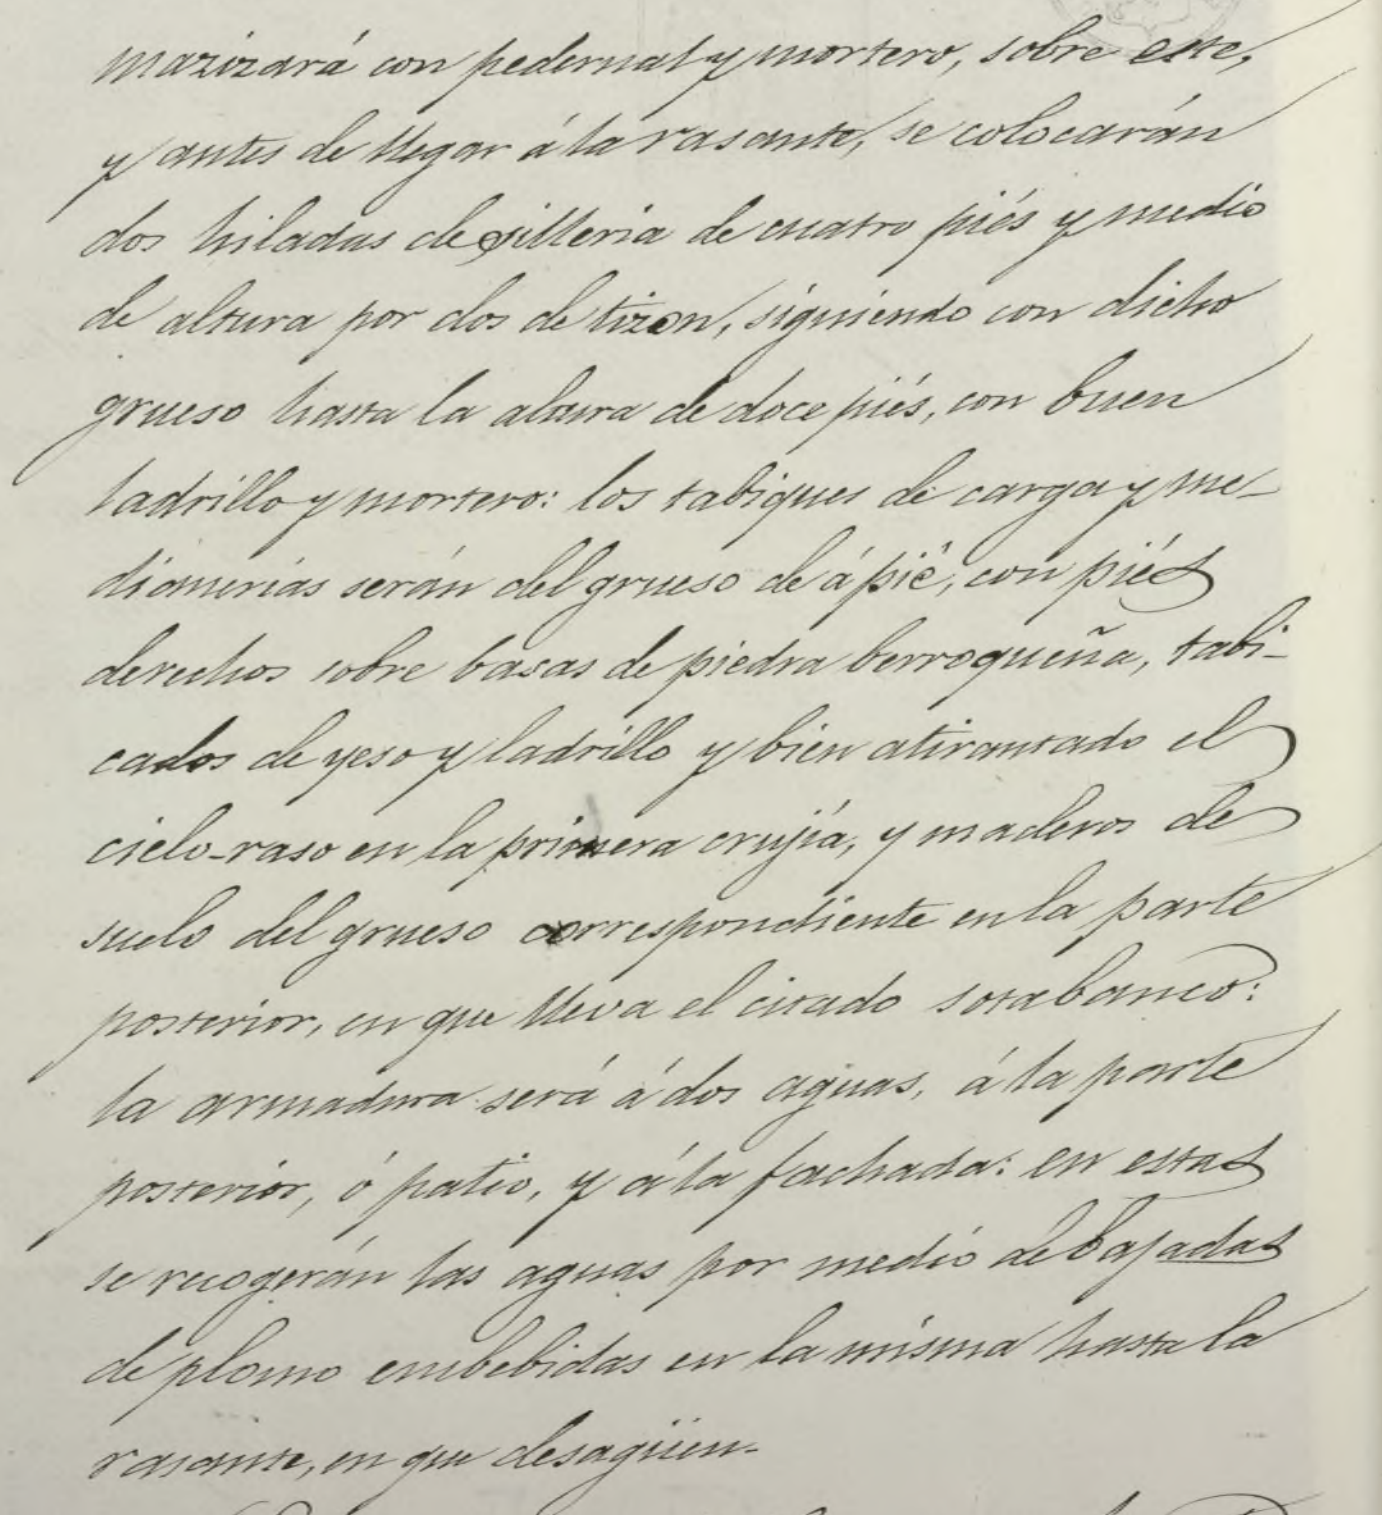 mazizará con pedernal y mortero, sobre este,
y antes de llegar á la rasante, se colocarán
dos hiladas de silleria de cuatro piés y medio
de altura por dos de tizon, siguiendo con dicho
grueso hasta la altura de doce piés, con buen
ladrillo y mortero: los tabiques de carga y me-
dianerias serán del grueso de á pié, con piés
derechos sobre basas de piedra berroqueña, tabi-
cados de yeso y ladrillo y bien atirantado el
cielo-raso en la primera crujía, y maderos de
suelo del grueso correspondiente en la parte
posterior, en que lleva el citado sotabanco:
la armadura será á dos aguas, á la parte
posterior, ó patio, y á la fachada: en estas
se recogerán las aguas por medio de bajadas
de plomo embebidas en la misma hasta la
rasante, en que desagüen-